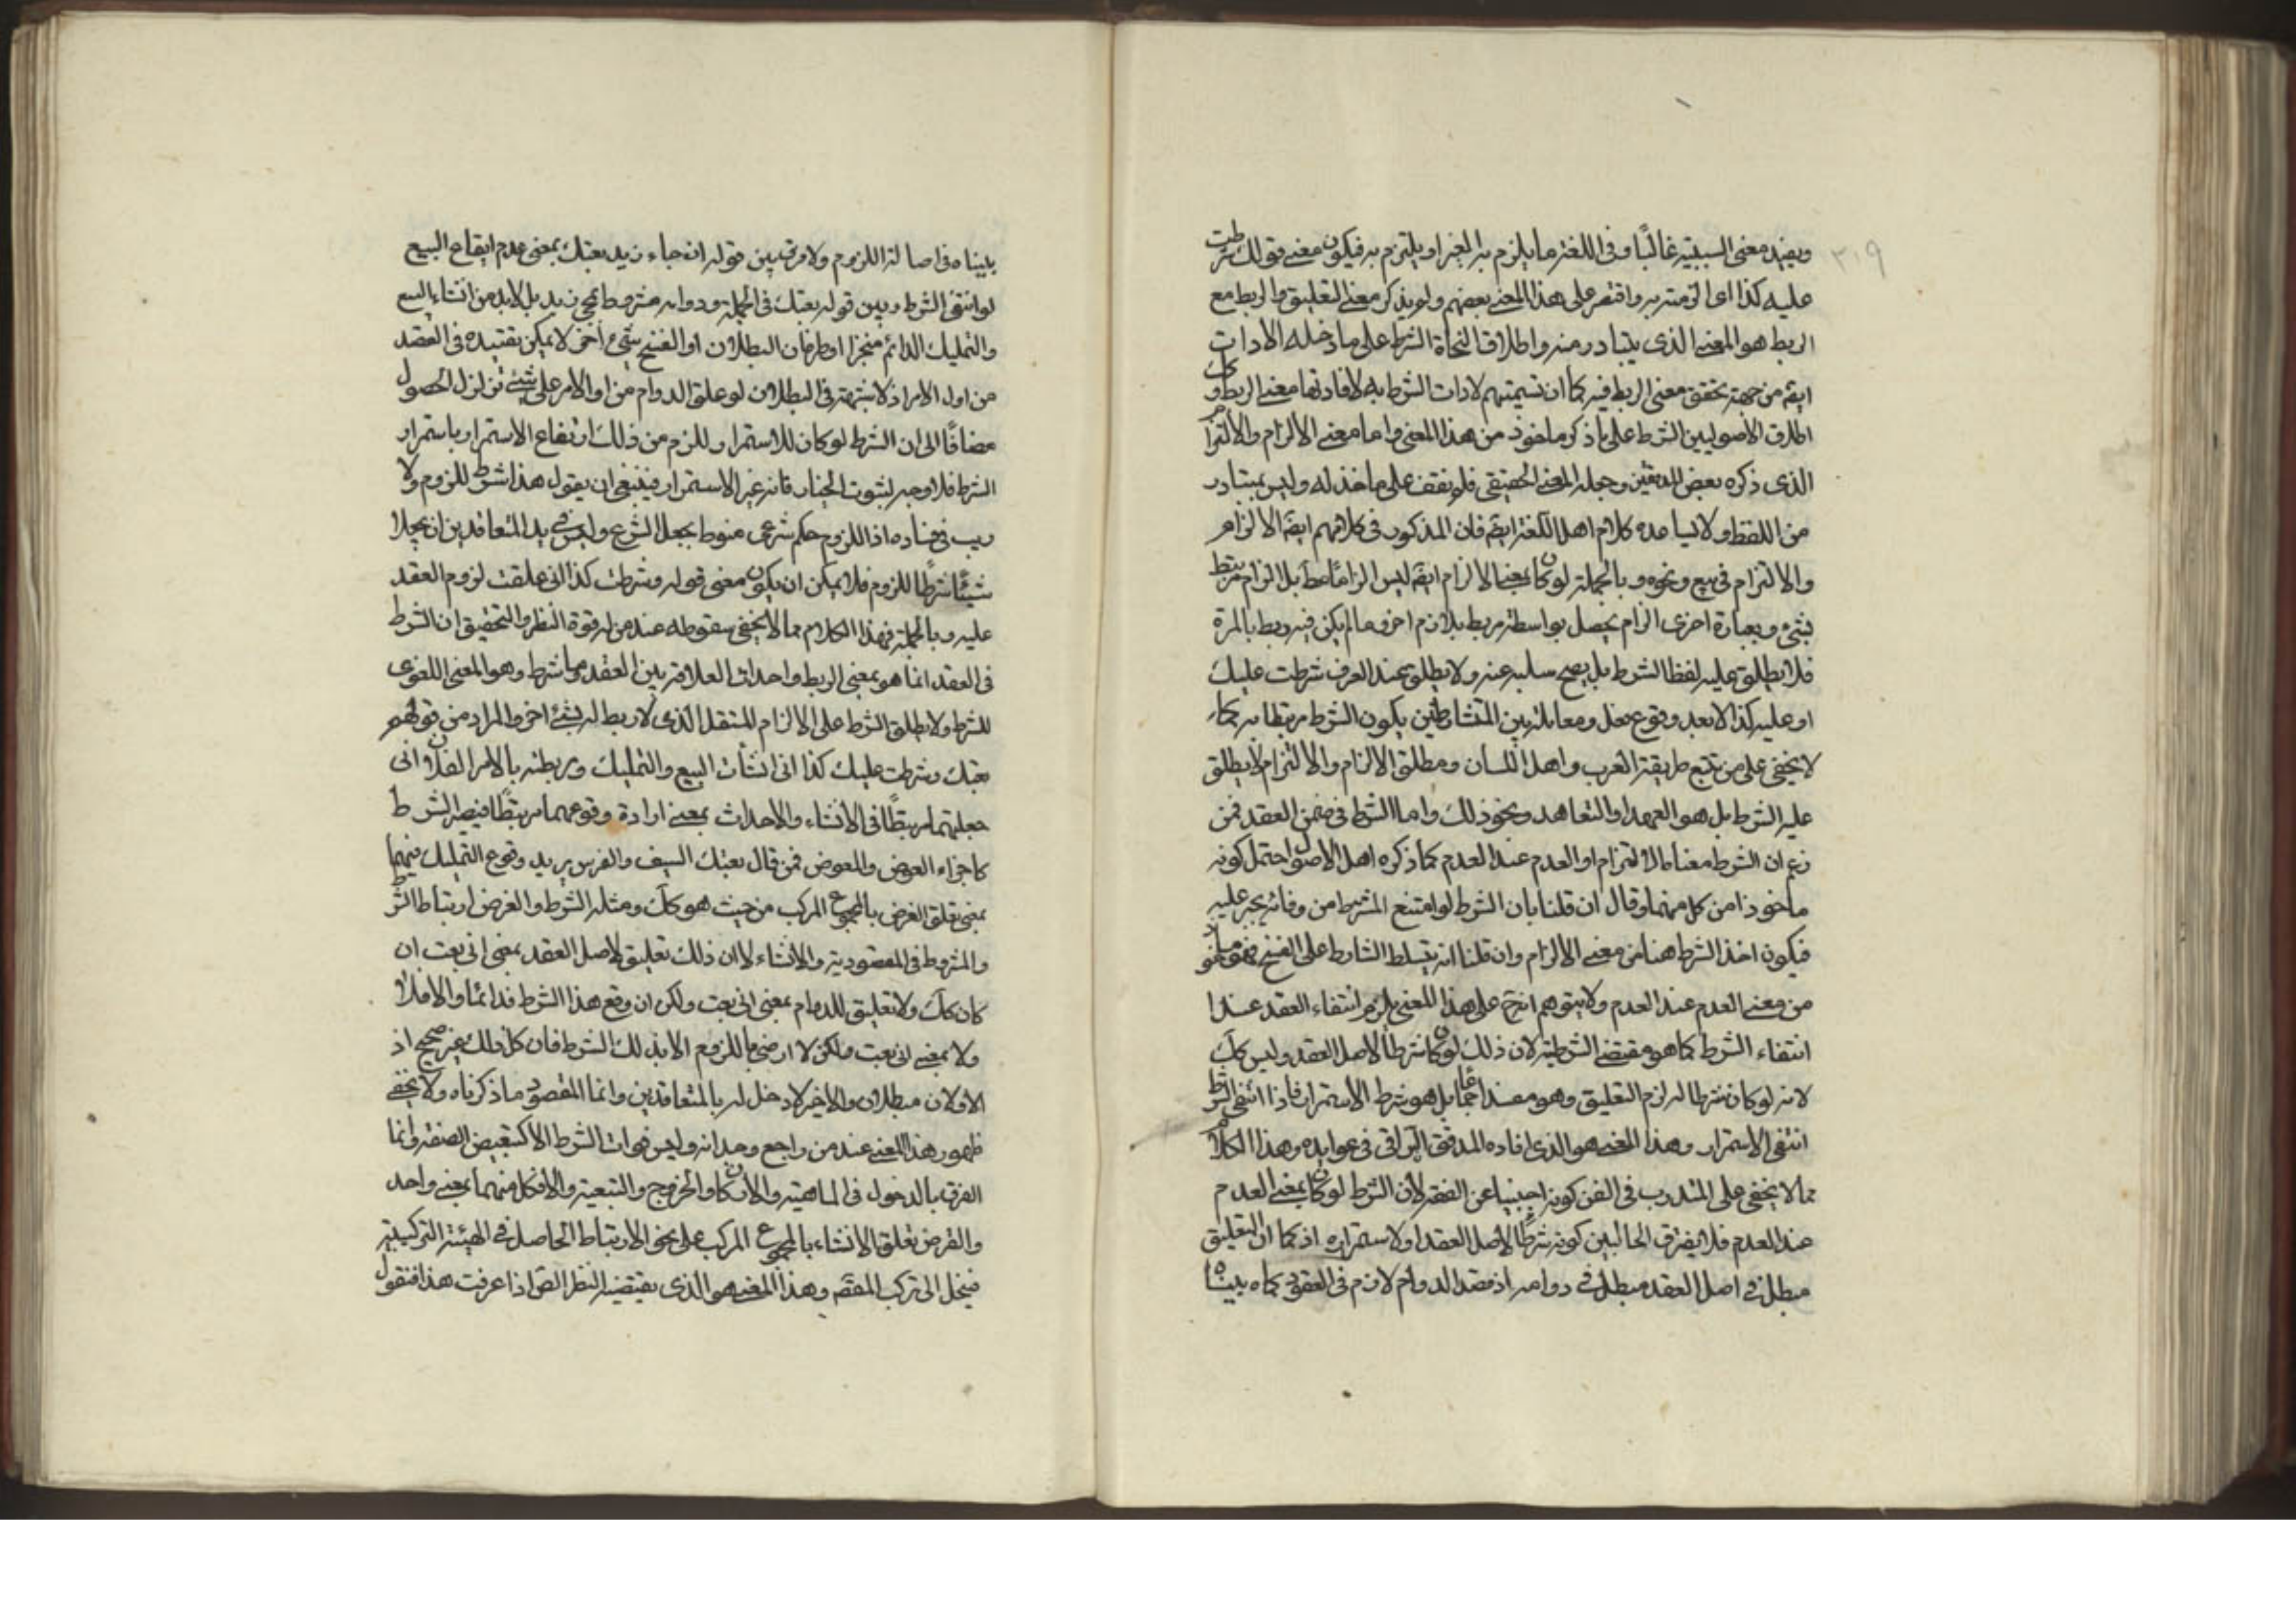 ٣١٩
ويفيد معنى السببية غالبًا وفى اللغة ما يلزم به الغير او يلتزم به فيكون معنى قولك شرطت
عليه كذا اى الزمته به واقتصر على هذا المعنى بعضهم ولم يذكر معنى التعليق والربط مع
الربط هو المعنى الذى يتبادر منه واطلاق النحاة الشرط على ما دخله الادات
ايضً من جهة تحقق معنى الربط فيه كما ان تسميتهم لادات الشرط به لافادتها معنى الربط وك
اطلاق الاصوليين الشرط على ما ذكر ماخوذ من هذا المعنى واما معنى الالزام والالتزام
الذى ذكره بعض المدققين وجعله المعنى الحقيقى فلم نقف على ماخذ له وليس بمتبادر
من اللفظ ولا يساعده كلام اهل اللغة ايضً فان المذكور فى كلامهم ايضً الالزام
والالتزام فى بيع ونحوه وبالجملة لو كان بمعنى الالزام ايضً ليس الزامًا مط بل الزام مرتبط
بشئ وبعبارة اخرى الزام يحصل بواسطة مربط بلازم اخر وما لم يكن فيه ربط بالمرة
فلا يطلق عليه لفظ الشرط بل يصح سلبه عنه ولا يطلق عند العرف شرطت عليك
او عليه كذا الا بعد وقوع فعل ومعاملة بين المتشارطين يكون الشرط مرتبطا به كما
لا يخفى على من تتبع طريقة العرب واهل اللسان ومطلق الالزام والالتزام لا يطلق
عليه الشرط بل هو العهد او التعاهد ونحو ذلك واما الشرط فى ضمن العقد فمن
زعم ان الشرط معناه الالتزام او العدم عند العدم كما ذكره اهل الاصول احتمل كونه
ماخوذا من كل منهما وقال ان قلنا بان الشرط لو امتنع المشترط من وفائه يجبر عليه
فيكون اخذ الشرط هنا من معنى الالزام وان قلنا انه يتسلط الشارط على الفسخ فهو ماخوذ
من معنى العدم عند العدم ولا يتوهم انه ح على هذا المعنى يلزم انتفاء العقد عند
انتفاء الشرط كما هو مقتضى الشرطية لان ذلك لو كان شرطًا لاصل العقد وليس كك
لانه لو كان شرطا له لزم التعليق وهو مفسد اجماعا بل هو شرط الاستمرار فاذا انتفى الشرط
انتفى الاستمرار وهذا المعنى هو الذى افاده المدقق النراقى فى عوايده وهذا الكلام
مما لا يخفى على المتدرب فى الفن كونه اجنبيا عن الفقه لان الشرط لو كان بمعنى العدم
عند العدم فلا يفرق الحال بين كونه شرطًا لاصل العقد او لاستمراره اذ كما ان التعليق
مبطل فى اصل العقد مبطل فى دوامه اذ قصد الدوام لازم فى العقود كما بيناه
بيناه فى اصالة اللزوم ولا فرق بين قوله ان جاء زيد بعتك بمعنى عدم ايقاع البيع
لو انتفى الشرط وبين قوله بعتك فى الجملة ودوامه مشروط بمجئ زيد بل لا بد من انشاء البيع
والتمليك الدائم منجزا او طريان البطلان او الفسخ بشئ اخر لا يمكن تقييده فى العقد
من اول الامر اذ لا شبهة فى البطلان لو علق الدوام من اول الامر على شئ تزلزل الحصول
مضافًا الى ان الشرط لو كان للاستمرار للزم من ذلك ارتفاع الاستمرار باستمرار
الشرط فلا وجه لثبوت الخيار فانه غير الاستمرار فينبغى ان يقول هذا شرط للزوم ولا
ريب فى فساده اذ اللزوم حكم شرعى منوط بجعل الشرع وليس فى يد المتعاقدين ان يجعلا
شيئًا شرطًا للزوم فلا يمكن ان يكون معنى قوله وشرطت كذا انى علقت لزوم العقد
عليه وبالجملة فهذا الكلام مما لا يخفى سقوطه عند من له قوة النظر والتحقيق ان الشرط
فى العقد انما هو بمعنى الربط واحداث العلاقة بين العقد وما شرط وهو المعنى اللغوى
للشرط ولا يطلق الشرط على الالزام المستقل الذى لا ربط له بشئ اخر والمراد من قولهم
بعتك وشرطت عليك كذا انى انشأت البيع والتمليك وربطته بالامر الفلانى انى
جعلتهما مرتبطًا فى الانشاء والاحداث بمعنى ارادة وقوعهما مرتبطًا فيصير الشرط
كاجزاء العوض والمعوض فمن قال بعتك السيف والفرس يريد وقوع التمليك فيهما
بمعنى تعلق الغرض بالمجموع المركب من حيث هو كك ومثله الشرط والغرض ارتباط الشرط
والمشروط فى المقصودية والانشاء لا ان ذلك تعليق لاصل العقد بمعنى انى بعت ان
كان كك ولا تعليق للدوام بمعنى انى بعت ولكن ان وقع هذا الشرط فدائما والا فلا
ولا بمعنى انى بعت ولكن لا ارضى باللزوم الا بذلك الشرط فان كل ذلك غير صحيح اذ
الاولان مبطلان والاخير لا دخل له بالمتعاقدين وانما المقصود ما ذكرناه ولا يخفى
ظهور هذا المعنى عند من راجع وجدانه وليس فوات الشرط الا كتبعيض الصفقة وانما
الفرق بالدخول فى الماهية والاركان والخروج والتبعية والا فكل منهما بمعنى واحد
والغرض تعلق الانشاء بالمجموع المركب على نحو الارتباط الحاصل فى الهيئة التركيبية
فينحل الى تركب المقصد وهذا المعنى هو الذى يقتضيه النظر الصافى اذا عرفت هذا فنقول